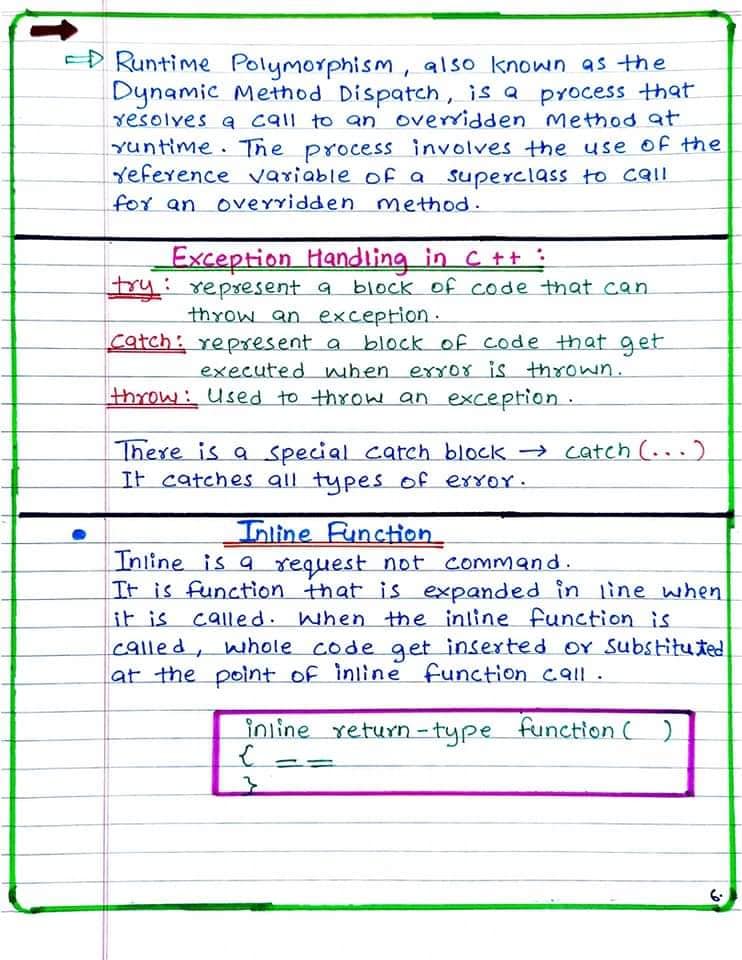 Runtime Polymorphism, also known as the
Dynamic Method Dispatch, is a process that
resolves a call to an overridden Method at
runtime. The process involves the use of the
reference variable of a superclass to call
for an overridden method.
Exception Handling in C++ :
try : represent a block of code that can
throw an exception.
catch : represent a block of code that get
executed when error is thrown.
throw : Used to throw an exception.
There is a special catch block → catch (...)
It catches all types of error.
• Inline Function
Inline is a request not command.
It is function that is expanded in line when
it is called. When the inline function is
called, whole code get inserted or substituted
at the point of inline function call.
inline return-type function ( )
{ ==
}
6.